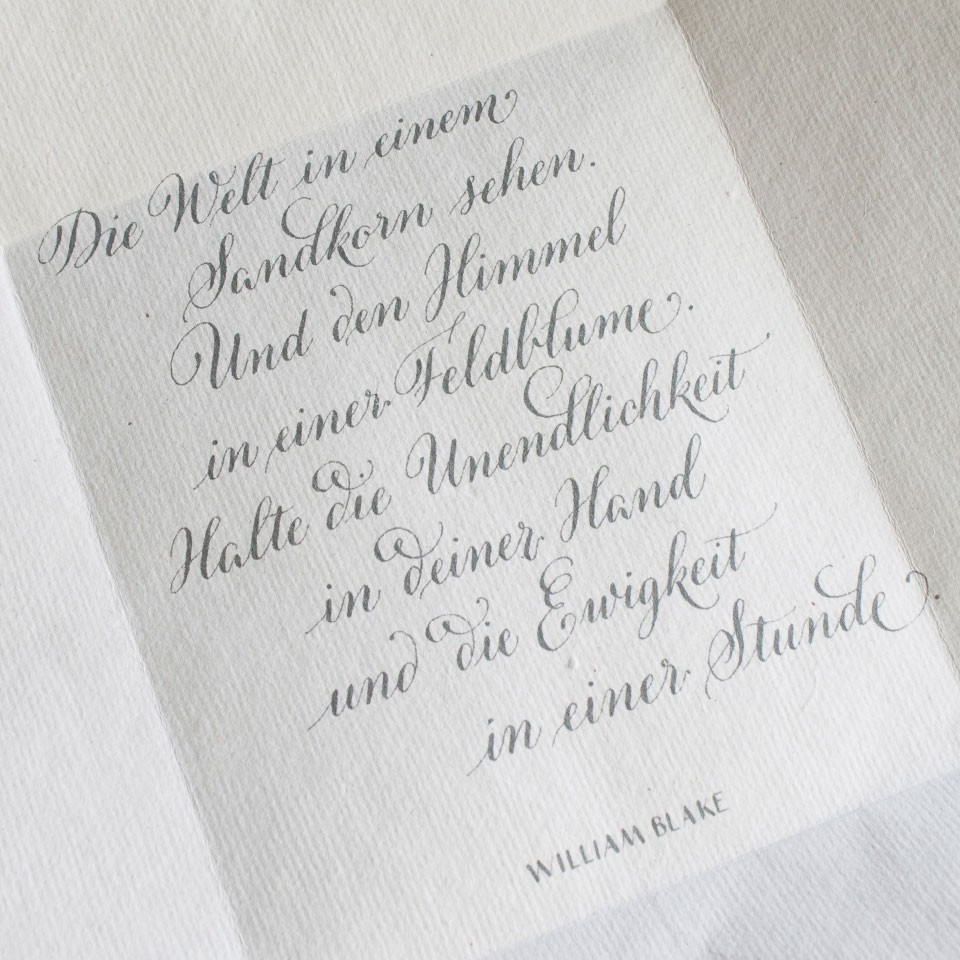 Die Welt in einem
Sandkorn sehen.
Und den Himmel
in einer Feldblume.
Halte die Unendlichkeit
in deiner Hand
und die Ewigkeit
in einer Stunde.
WILLIAM BLAKE